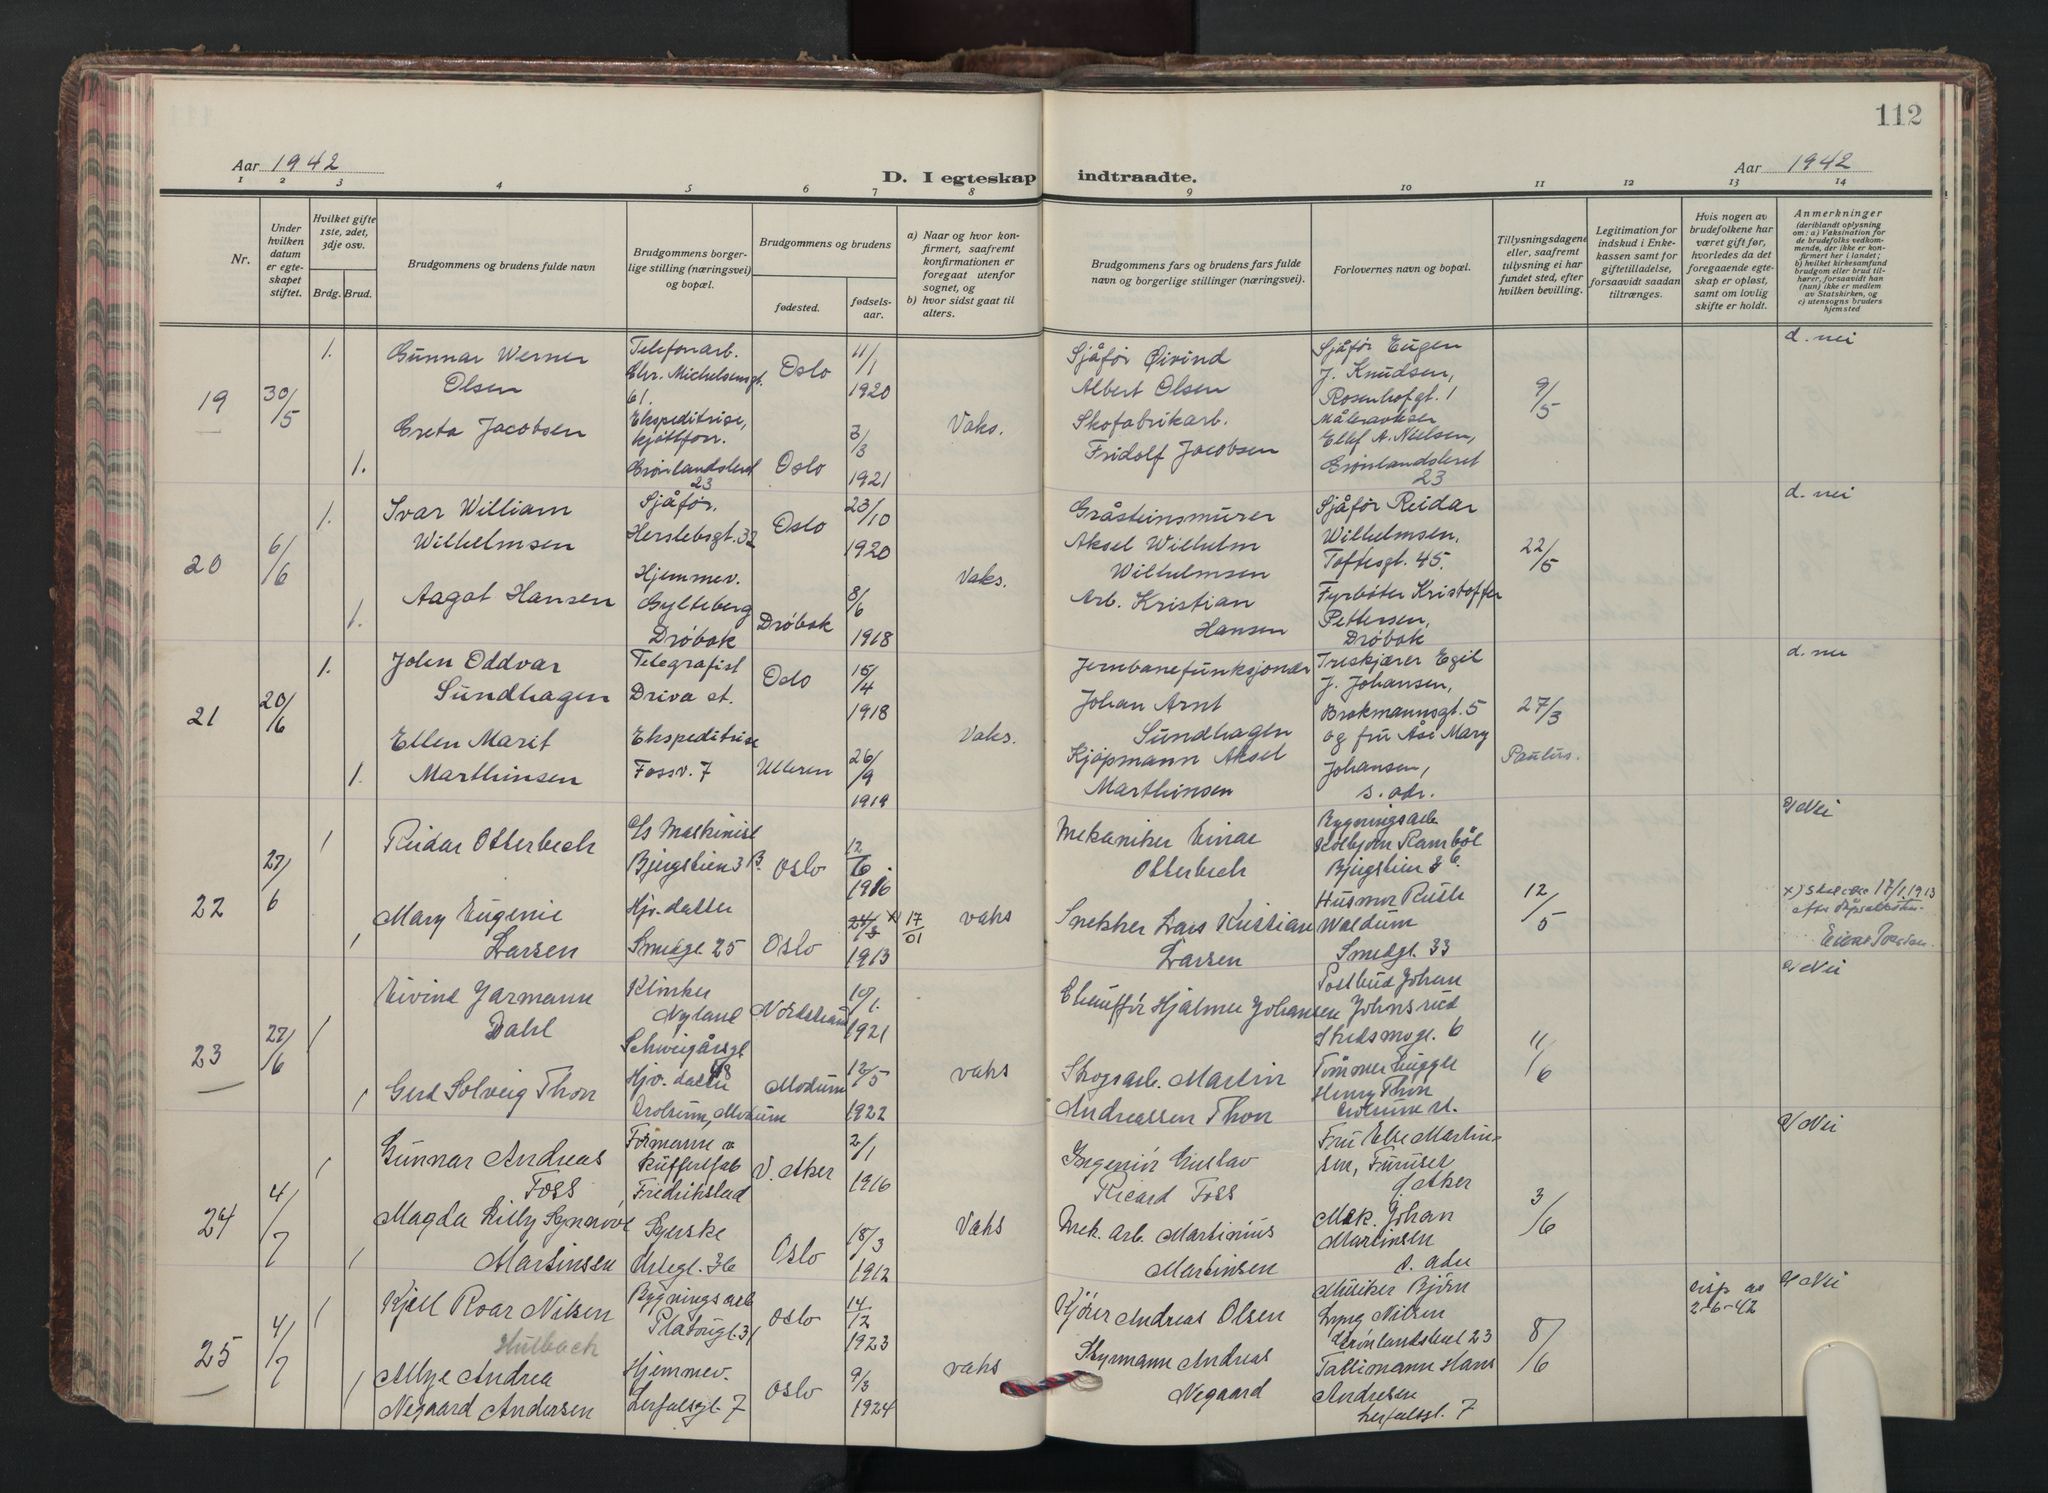 112
Aar 1942
D. I egteskap indtraadte.
Aar 1942
1 2 3 4 5 6 7 8 9 10 11 12 13 14
Nr.
Under hvilken datum er egteskapet stiftet.
Hvilket gifte 1ste, 2det, 3dje osv.
Brdg. Brud.
Brudgommens og brudens fulde navn
Brudgommens borgerlige stilling (næringsvei) og bopæl.
Brudgommens og brudens
fødested.
fødselsaar.
a) Naar og hvor konfirmert, saafremt konfirmationen er foregaat utenfor sognet, og
b) hvor sidst gaat til alters.
Brudgommens fars og brudens fars fulde navn og borgerlige stillinger (næringsvei).
Forlovernes navn og bopæl.
Tillysningsdagene eller, saafremt tillysning ei har fundet sted, efter hvilken bevilling.
Legitimation for indskud i Enkekassen samt for giftetilladelse, forsaavidt saadan tiltrænges.
Hvis nogen av brudefolkene har været gift før, hvorledes da det foregaaende egteskap er opløst, samt om lovlig skifte er holdt.
Anmerkninger
(deriblandt oplysning om: a) Vaksination for de brudefolks vedkommende, der ikke er konfirmert her i landet; b) hvilket kirkesamfund brudgom eller brud tilhører, forsaavidt han (hun) ikke er medlem av Statskirken, og c) utensogns bruders hjemsted
19
30/5
1.
Gunnar Werner
Olsen
Telefonarb.
Chr. Michelsensgt.
61.
Oslo
11/1
1920
Sjåfør Øivind
Albert Olsen
Sjåfør Eugen
J. Knudsen,
Rosenhofgt. 1
9/5
d. nei
1.
Greta Jacobsen
Ekspeditrise,
kjøttforr.
Grønlandsleret
23
Oslo
3/3
1921
Vaks.
Skofabrikarb.
Fridolf Jacobsen
Måleravleser
Ellef A. Nielsen,
Grønlandsleret
23
20
6/6
1.
Ivar William
Wilhelmsen
Sjåfør,
Herslebsgt. 32
Oslo
23/10
1920
Gråsteinsmurer
Aksel Wilhelm
Wilhelmsen
Sjåfør Reidar
Wilhelmsen,
Toftesgt. 45.
22/5
d. nei
1.
Aagot Hansen
Hjemmev.
Gylteberg
Drøbak
Drøbak
8/6
1918
Vaks.
Arb. Kristian
Hansen
Fyrbøter Kristoffer
Pettersen,
Drøbak
21
20/6
1.
John Oddvar
Sundhagen
Telegrafist
Driva st.
Oslo
15/4
1918
Jernbanefunksjonær
Johan Arnt
Sundhagen
Treskjærer Egil
J. Johansen,
Brokmannsgt. 5
27/3
Paulus.
d. nei
1.
Ellen Marit
Marthinsen
Ekspeditrise
Fossv. 7
Ulleren
26/9
1919
Vaks.
Kjøpmann Aksel
Marthinsen
og fru Åse Mary
Johansen,
s. adr.
22
27/6
1
Reidar Otterbech
Maskinist
Bjergstien 3 B.
Oslo
12/6
1916
Mekaniker Einar
Otterbech
Bygningsarb
Bjergstien
12/5
Nei
1
Mary Eugenie
Larsen
Hjv. datter
Smedgt. 25
Oslo
24/3 x) 17/01
1913
vaks
Snekker Lars Kristian
Larsen
Husmor Ruth
Waldum
Smedgt. 33
x) Skal være 17/1 1913
23
27/6
1
Eivind Jarmann
Dahl
Klinker
Nyland
Schweigårsgt.
48
Nordstrand
10/1.
1921
Chauffør Hjalmer Johansen
Postbud Johan
Johnsrud
Skedsmogt. 6
11/6
Nei
1
Gerd Solveig Thon
Hjv. datter
Drolsum, Modum
Modum
12/5
1922
vaks
Skogsarb. Martin
Andreassen Thon
Tømmerhugger
Henry Thon
24
4/7
1
Gunnar Andreas
Foss
Formann v
kuffertfab
Fredrikstad
V. Aker
2/1
1916
Ingeniør Gustav
Ricard Foss
Fru Else Martin-
sen, Furuset
Ø. Aker
3/6
Nei
1
Magda Lilly Synnøve
Martinsen
Syerske
Urtegt. 36
Oslo
18/3
1912
Vaks
Mek. arb. Martinius
Martinsen
Mek. Johan
Martinsen
s. adr
25
4/7
1
Kjell Roar Nilsen
Hulbach
Bygningsarb
Platousgt. 31
Oslo
14/12
1923
Kjører Andreas Olsen
Musiker Bjørn
Lyng Nilsen
Grønlandsleret 23
8/6
disp av
2-6-42
Nei
1
Alfhild Andrea
Negaard Andersen
Hjemmev.
Lerfalsgt. 7
Oslo
9/3
1924
vaks
Styrmann Andreas
Negaard
Tallimann Hans
Andresen
Lerfalsgt. 7